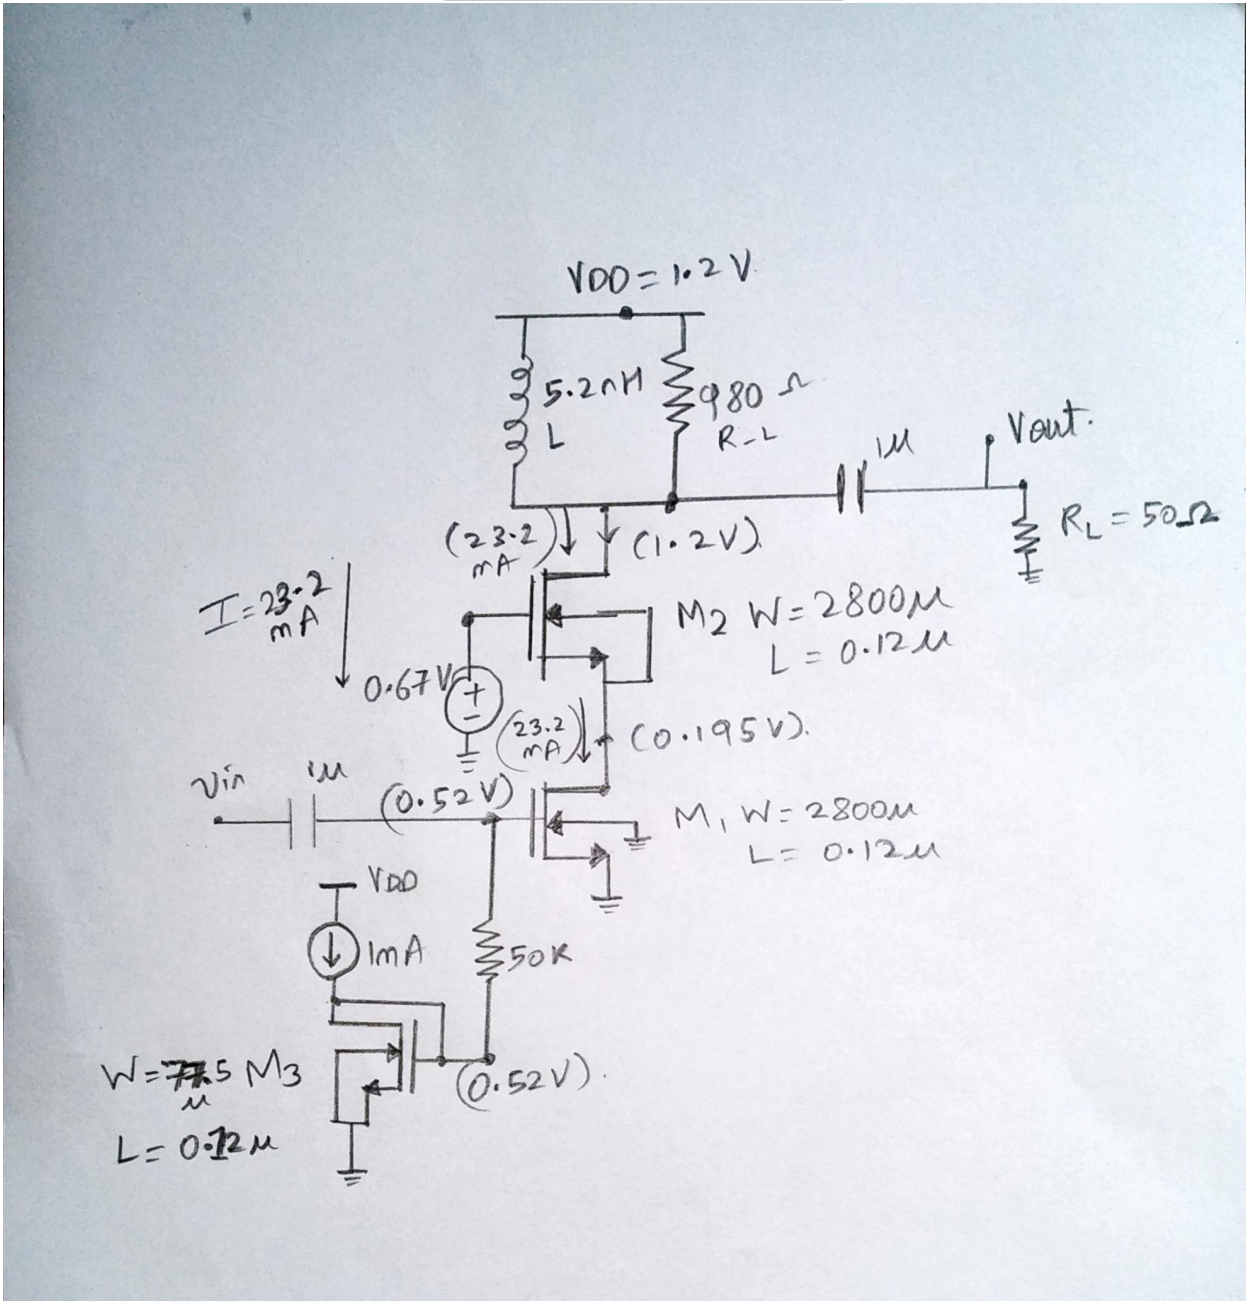 VDD = 1.2 V
5.2nH
L
980 Ω
R_L
1µ
Vout.
RL = 50Ω
(23.2 mA)
(1.2V)
I = 23.2 mA
M2 W = 2800µ
L = 0.12µ
0.67V
+
-
(23.2 mA)
(0.195V).
Vin
1µ
(0.52V)
M1 W = 2800µ
L = 0.12µ
VDD
1mA
50K
W = 77.5 µ M3
L = 0.12µ
(0.52V).